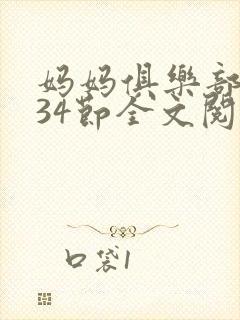 妈妈俱樂部
34節全文閱
口袋1